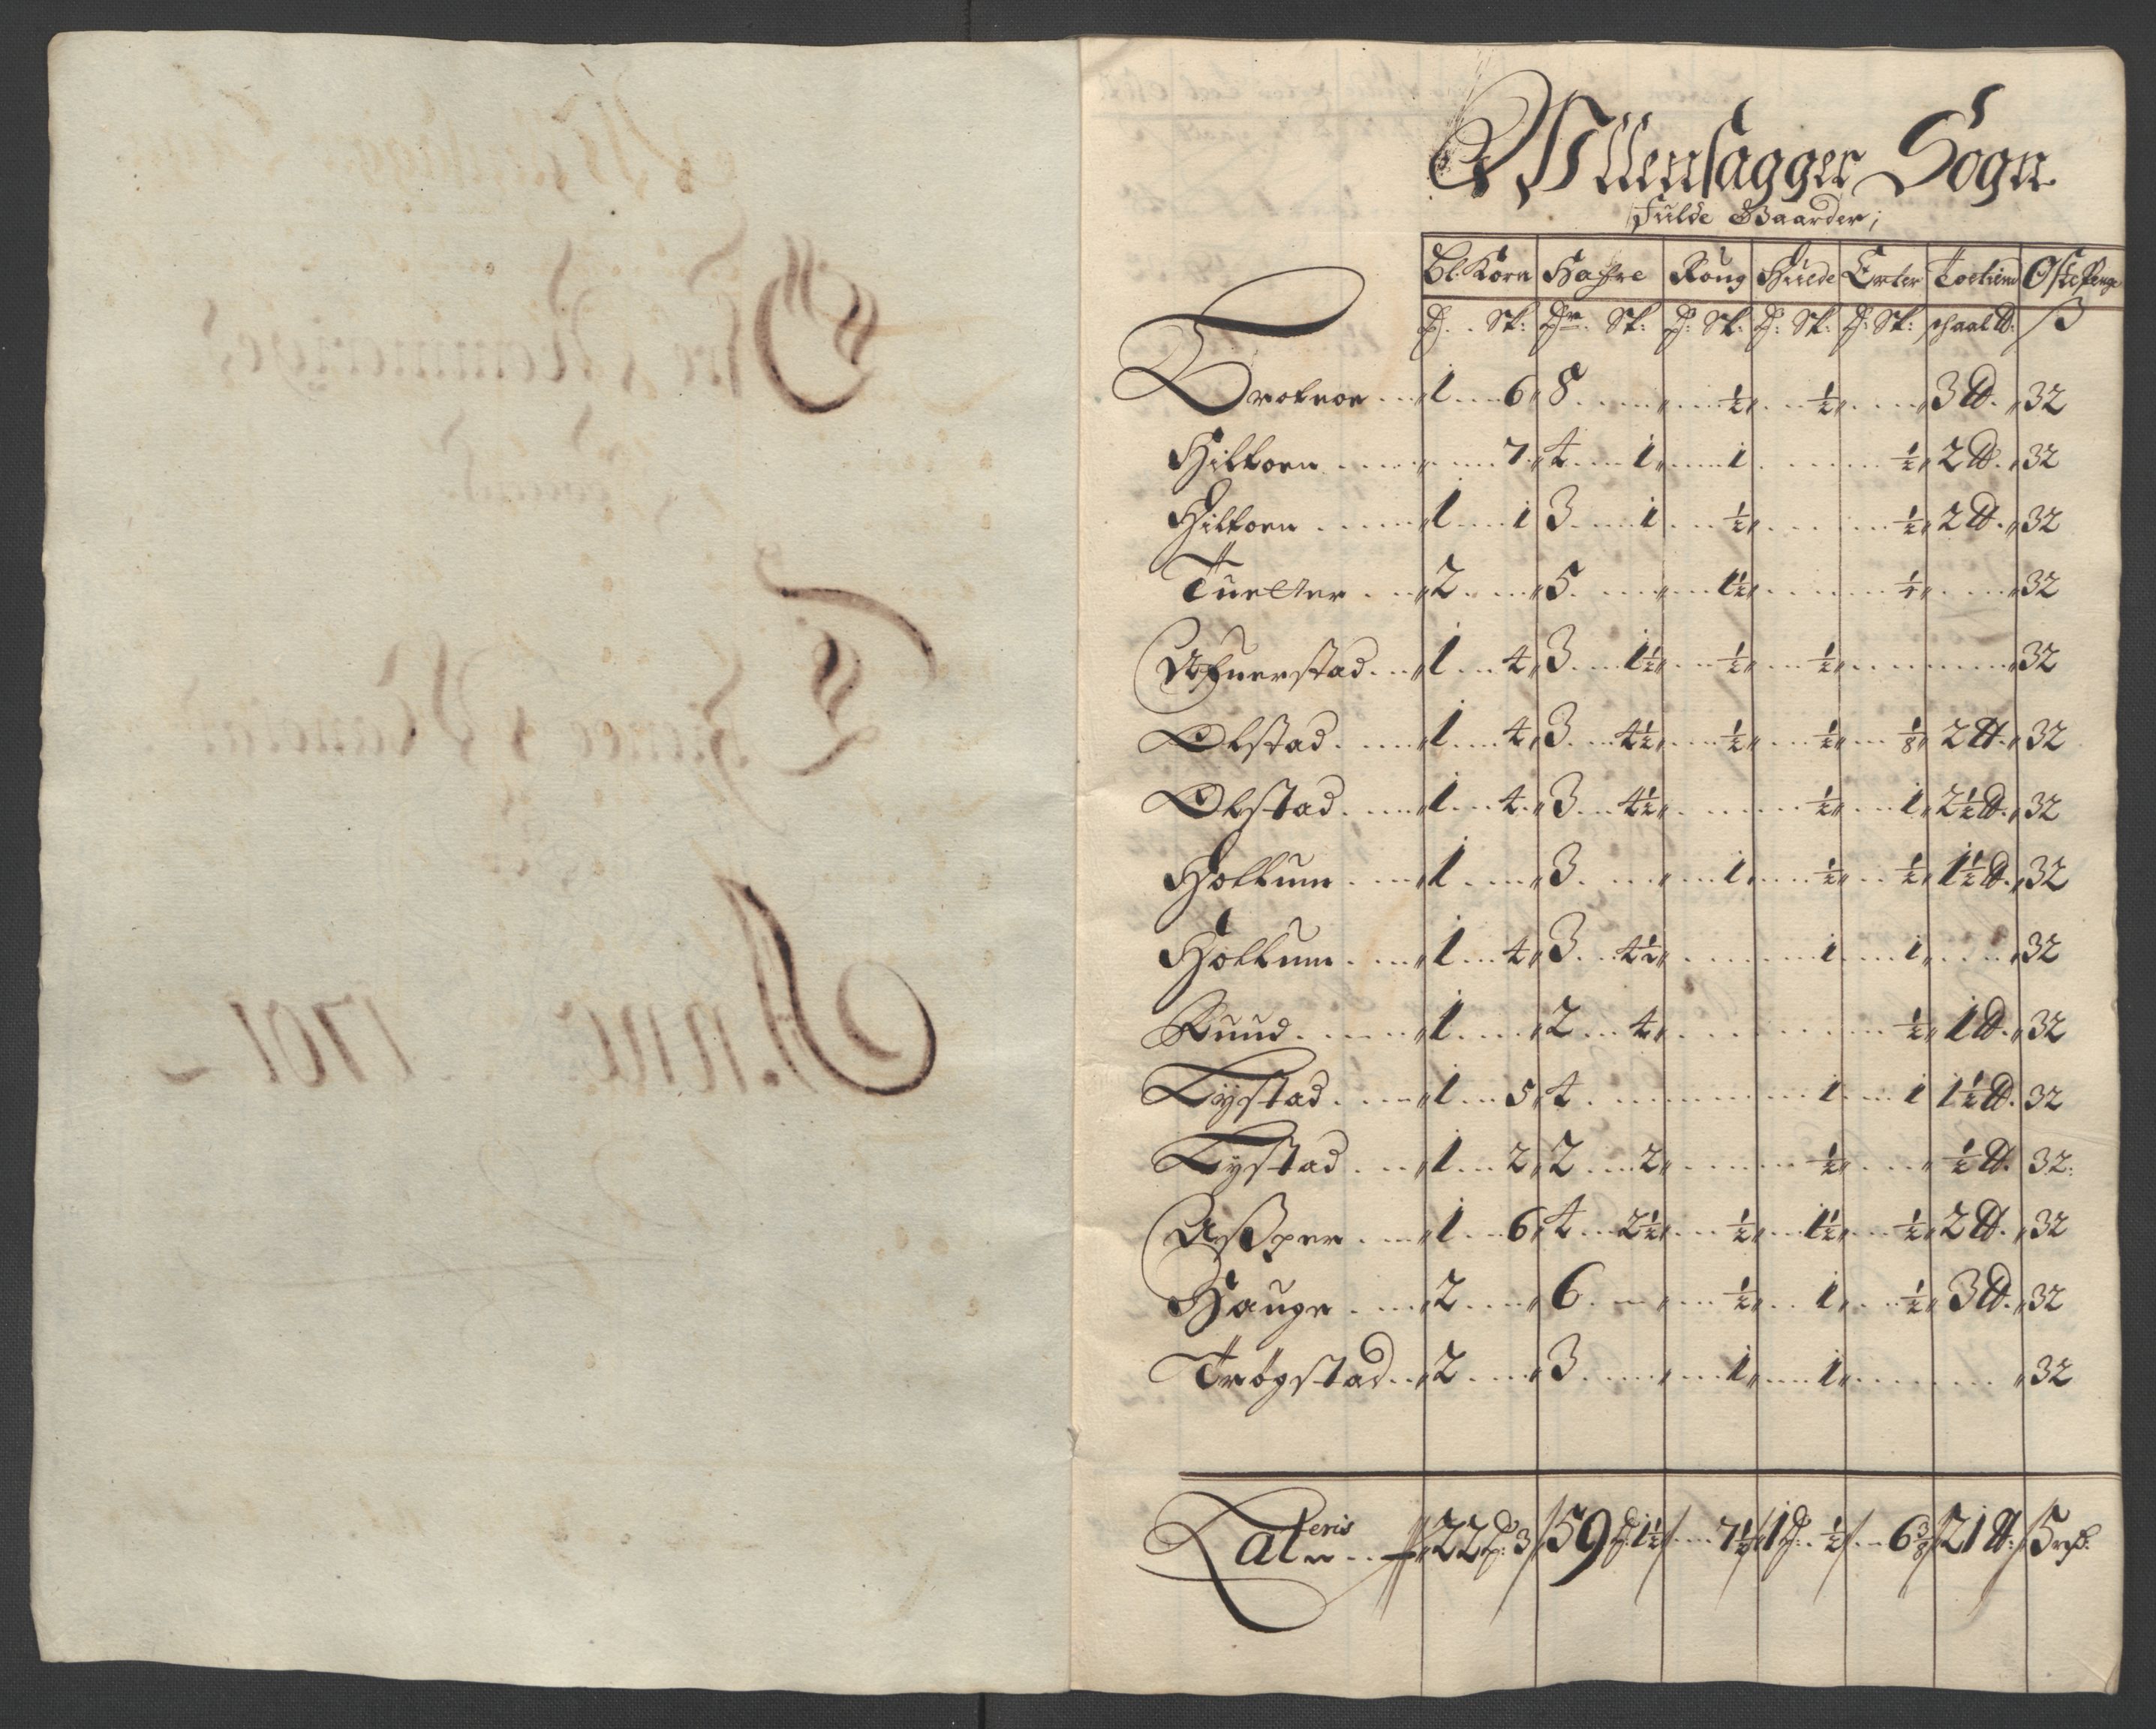 Ullensagger Sogn
fulde Gaarder;
Bl: Korn Hafre Roug Huede Erter Toetiend Ostepenge
tr. Sk: tr. Sk: tr: Sk: tr: Sk: tr: Sk: schaal ℔: ß
1 6 8 ½ ½ 3 ℔. 32
Hilton 7 4 1 1 ½ 2 ℔. 32
Hilton 1 1 3 1 ½ ½ 2 ℔. 32
Tuetter 2 5 1½ ½ 32
Afuerstad 1 4 3 1½ ½ ½ 32
Olstad 1 4 3 4½ ½ ½ ⅛ 2 ℔. 32
Olstad 1 4 3 4½ ½ 1 2½ ℔. 32
Holkum 1 3 1 ½ ½ 1½ ℔. 32
Holkum 1 4 3 4½ 1 1 32
Ruud 1 2 4 ½ 1 ℔. 32
Lystad 1 5 4 1 1 1½ ℔. 32
Lystad 1 2 2 2 ½ ½ ℔. 32
Asper 1 6 4 2½ ½ 1½ ½ 2 ℔. 32
Hauge 2 6 ½ 1 ½ 3 ℔. 32
Trögstad 2 3 1 1 32
Lateris 22 tr: 3 59 tr: 1½ 7½ 1 tr: ½ 6⅜ 21 ℔: 5 rd:
Anno 1701